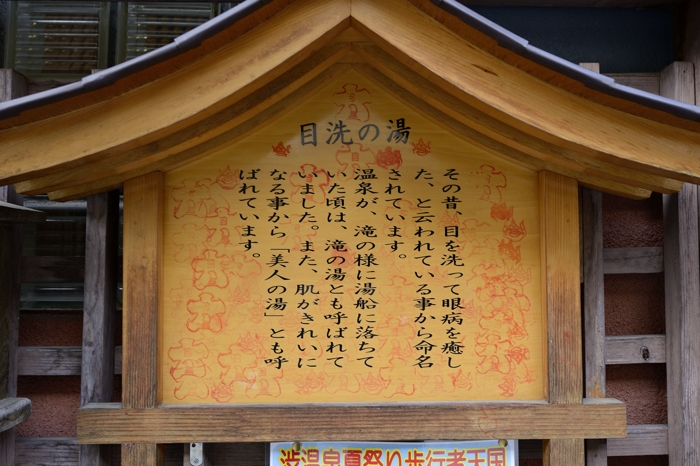 目洗の湯
その昔、目を洗って眼病を癒し
た、と云われている事から命名
されています。
温泉が、滝の様に湯船に落ちて
いた頃は、滝の湯とも呼ばれて
いました。また、肌がきれいに
なる事から「美人の湯」とも呼
ばれています。
渋温泉夏祭り歩行者天国